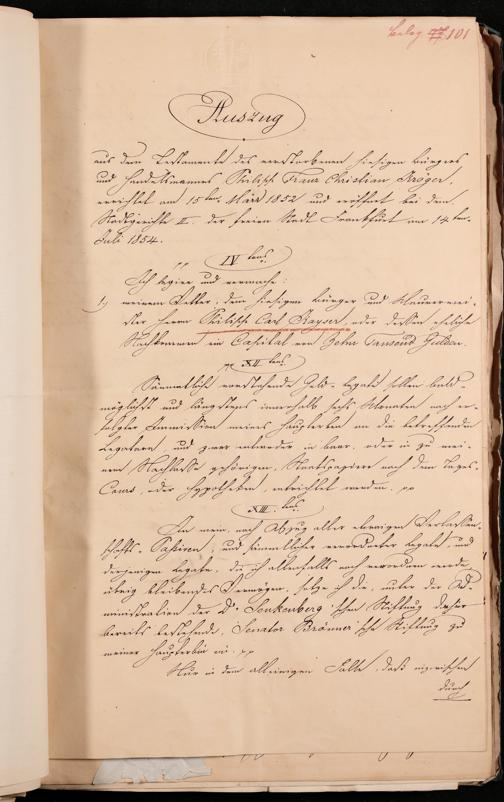 Beleg 101
Auszug
aus dem Testamente des verstorbenen hiesigen Bürgers
und Handelsmannes Philipp Franz Christian Kröger,
errichtet am 15ten März 1852 und eröffnet bei dem
Stadtgerichte II. der freien Stadt Frankfurt am 14ten
Juli 1854.
IVtens
Ich legire und vermache:
1) meinem Vetter, dem hiesigen Bürger und Maurermei-
ster Herrn Philipp Carl Kayser, oder dessen eheliche
Nachkommen ein Capital von Zehn Tausend Gulden.
XIItens
Sämmtliche vorstehende Geld-Legate sollen bald-
möglichst und längstens innerhalb sechs Monaten nach er-
folgter Immission meines Haupterben an die betreffenden
Legatare, und zwar entweder in baar, oder in zu mei-
nem Nachlasse gehörigen Staatspapieren nach dem Tages-
Cours, oder Hypotheken, entrichtet werden.
XIII.tens
In mein, nach Abzug aller etwaigen Verlassen-
schafts-Passiven, und sämmtlicher verordneter Legate, und
derjenigen Legate, die ich allenfalls noch verordnen werde,
übrig bleibendes Vermögen, setze ich die, unter der Ad-
ministration der Dr. Senkenberg'schen Stiftung daher
bereits bestehende, Senator Brönner'sche Stiftung zu
meiner Haupterbin ein.
Nur in dem alleinigen Falle, daß inzwischen
durch